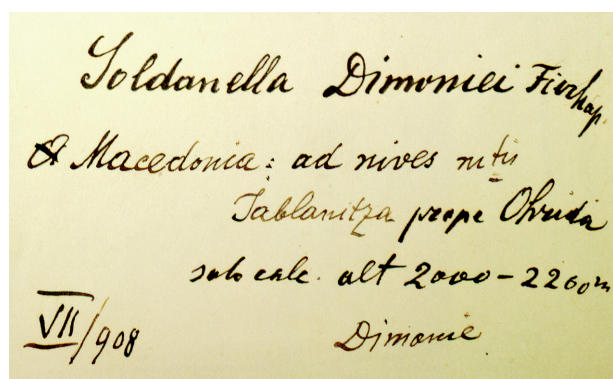 Soldanella Dimoniei Vierhap.
Macedonia: ad nives mtis
Jablanitza prope Ohrida
solo calc. alt 2000-2260m
VII/908
Dimonie